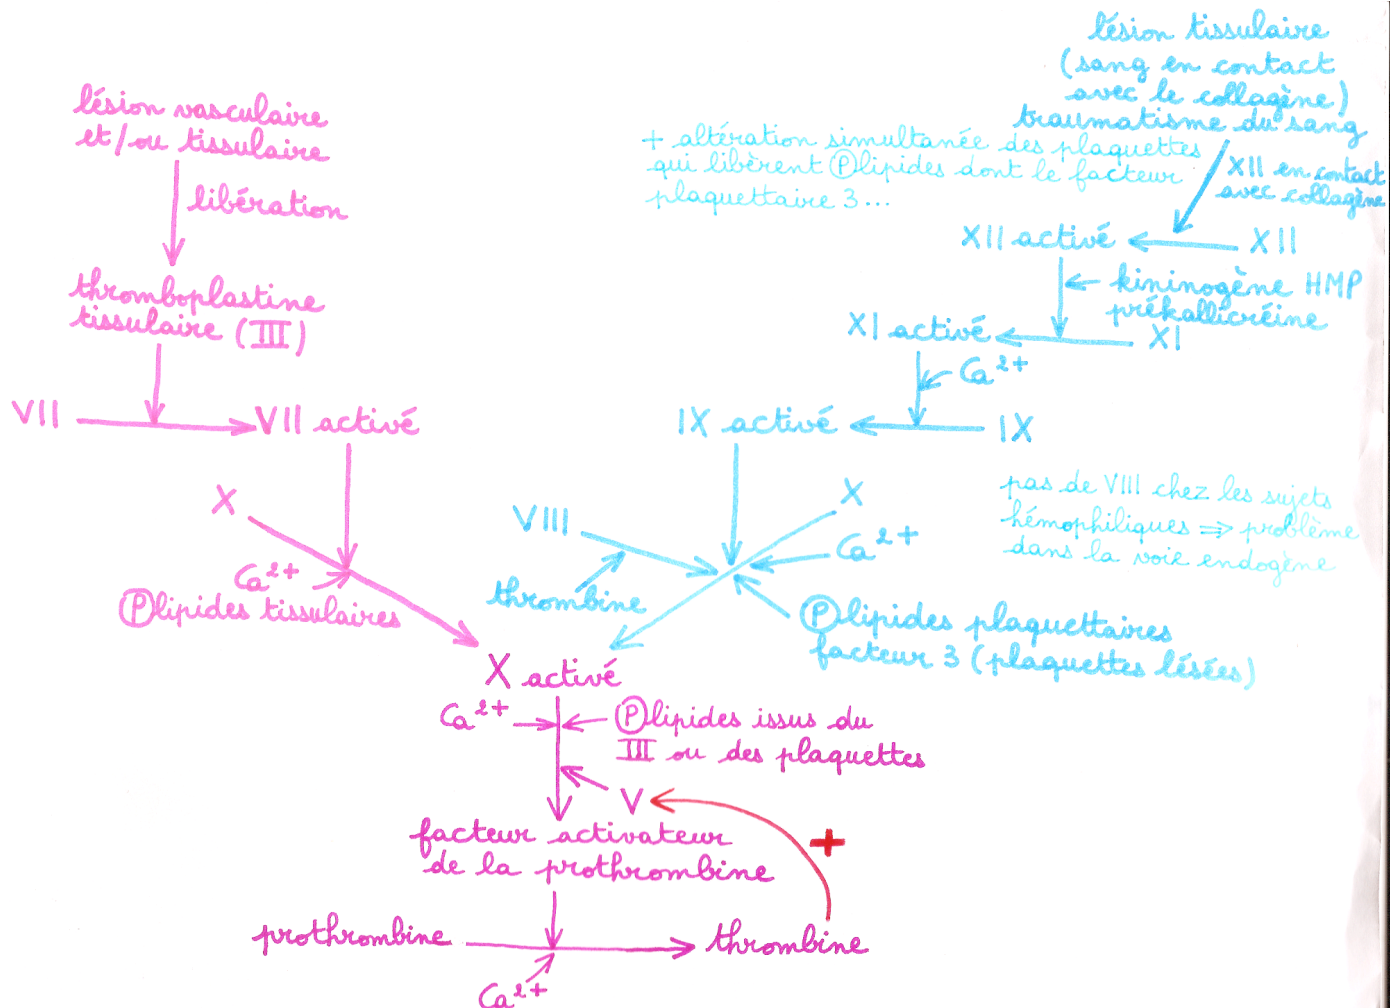 lésion vasculaire
et/ou tissulaire
libération
thromboplastine
tissulaire (III)
VII
VII activé
X
Ca2+
Ⓟlipides tissulaires
lésion tissulaire
(sang en contact
avec le collagène)
traumatisme du sang
+ altération simultanée des plaquettes
qui libèrent Ⓟlipides dont le facteur
plaquettaire 3...
XII en contact
avec collagène
XII activé
XII
kininogène HMP
prékallicréine
XI activé
XI
Ca2+
IX activé
IX
VIII
X
Ca2+
thrombine
Ⓟlipides plaquettaires
facteur 3 (plaquettes lésées)
pas de VIII chez les sujets
hémophiliques ⇒ problème
dans la voie endogène
X activé
Ca2+
Ⓟlipides issus du
III ou des plaquettes
V
+
facteur activateur
de la prothrombine
prothrombine
thrombine
Ca2+